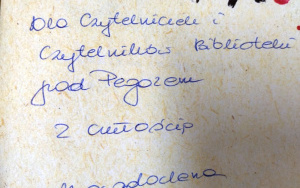 Dla Czytelniczek i
Czytelników Biblioteki
pod Pegazem
z czułością
Magdalena